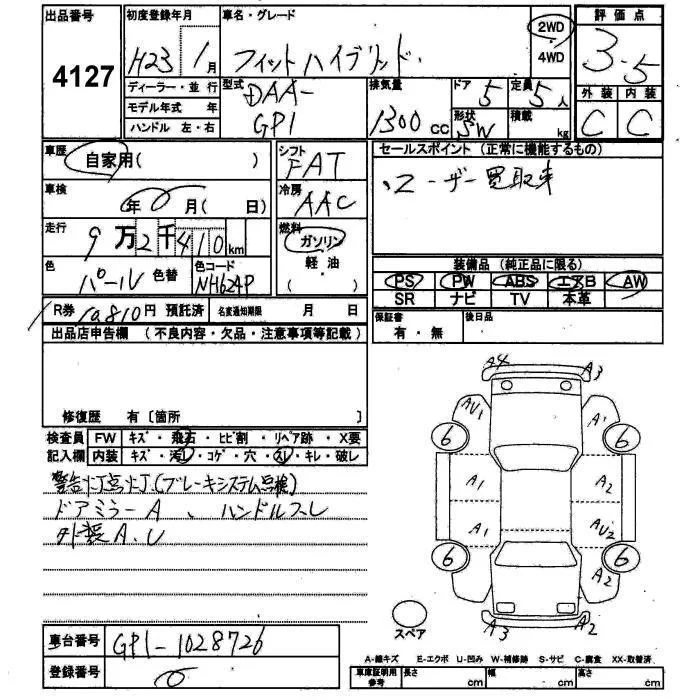 出品番号
4127
初度登録年月
H23 1月
車名・グレード
フィット ハイブリッド
2WD
・
4WD
評価点
3.5
外装 内装
C C
ディーラー・並行
モデル年式 年
ハンドル 左・右
型式
DAA-
GP1
排気量
1300cc
ドア 5
定員 5人
形状 SW
積載 kg
車歴
自家用( )
シフト
FAT
セールスポイント (正常に機能するもの)
ユーザー買取車
車検
年 月( 日)
冷房
AAC
走行
9万2千410km
燃料
ガソリン
軽油
( )
色
パール
色替
色コード
NH624P
装備品 (純正品に限る)
PS PW ABS エアB AW
SR ナビ TV 本革
R券 10810円 預託済 名変通知期限 月 日
保証書
有・無
後日品
出品店申告欄 (不良内容・欠品・注意事項等記載)
修復歴 有〔箇所
検査員
記入欄
FW キズ・飛石・ヒビ割・リペア跡・X要
内装 キズ・汚レ・コゲ・穴・スレ・キレ・破レ
警告灯点灯(ブレーキシステム点検)
ドアミラーA、ハンドルスレ
外装A.U
A4
A3
AU1
A1
6
6
A1
A2
A1
AU2
6
6
A2
A3
A2
スペア
車台番号
GP1-1028726
登録番号
A-線キズ E-エクボ U-凹み W-補修跡 S-サビ C-腐食 XX-取替済
車庫証明用
参考
長さ cm
幅 cm
高さ cm